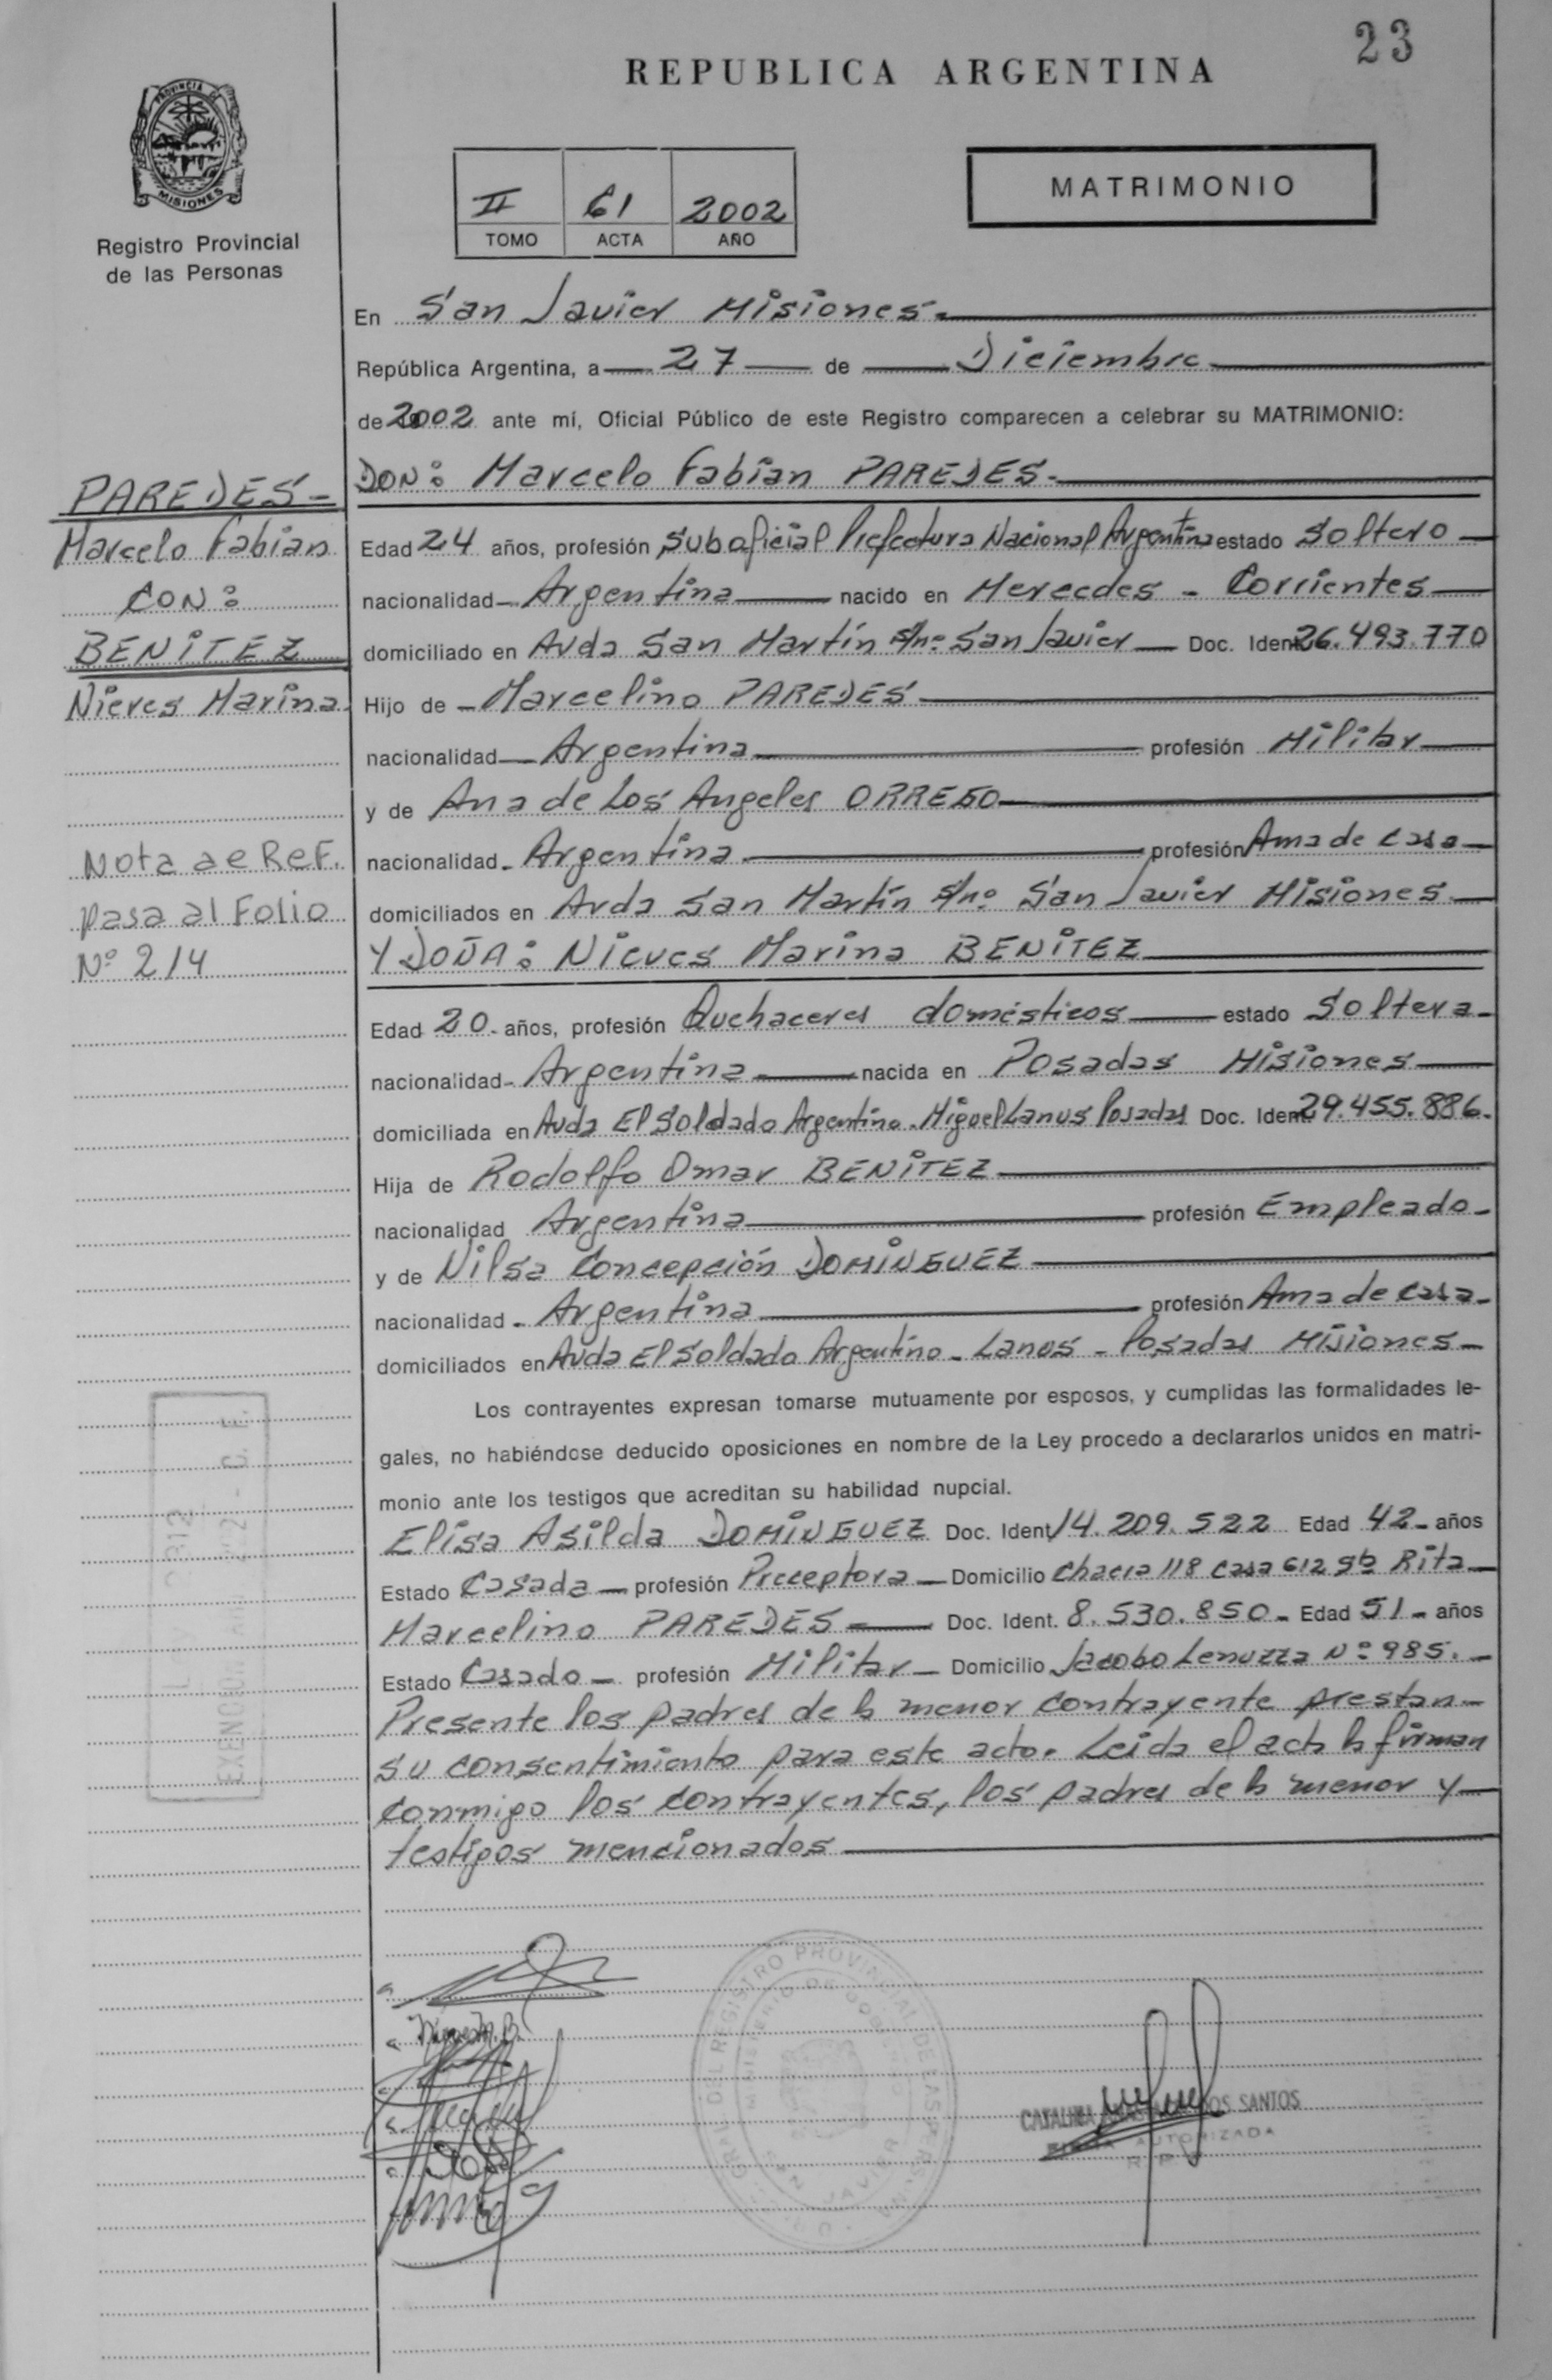 23
REPUBLICA ARGENTINA
PROVINCIA DE
MISIONES
Registro Provincial
de las Personas
II 61 2002
TOMO ACTA AÑO
MATRIMONIO
En San Javier Misiones.
República Argentina, a 27 de Diciembre
de 2002 ante mí, Oficial Público de este Registro comparecen a celebrar su MATRIMONIO:
DON: Marcelo Fabian PAREDES.
PAREDES
Marcelo Fabian
CON:
BENITEZ
Nieves Marina
Edad 24 años, profesión Suboficial Prefectura Nacional Argentina estado Soltero
nacionalidad Argentina nacido en Mercedes - Corrientes
domiciliado en Avda San Martín s/nº San Javier Doc. Ident. 26.493.770
Hijo de Marcelino PAREDES
nacionalidad Argentina profesión Militar
y de Ana de Los Angeles ORREGO
nacionalidad Argentina profesión Ama de casa
domiciliados en Avda San Martín s/nº San Javier Misiones
Nota de Ref.
pasa al Folio
Nº 214
Y DOÑA: Nieves Marina BENITEZ
Edad 20 años, profesión Quehaceres domésticos estado Soltera
nacionalidad Argentina nacida en Posadas Misiones
domiciliada en Avda El Soldado Argentino. Miguel Lanus Posadas Doc. Ident. 29.455.886.
Hija de Rodolfo Omar BENITEZ
nacionalidad Argentina profesión Empleado
y de Nilsa Concepción DOMINGUEZ
nacionalidad Argentina profesión Ama de casa
domiciliados en Avda El Soldado Argentino - Lanus - Posadas Misiones
Los contrayentes expresan tomarse mutuamente por esposos, y cumplidas las formalidades le-
gales, no habiéndose deducido oposiciones en nombre de la Ley procedo a declararlos unidos en matri-
monio ante los testigos que acreditan su habilidad nupcial.
Elisa Asilda DOMINGUEZ Doc. Ident. 14.209.522 Edad 42 años
Estado Casada profesión Preceptora Domicilio chacra 118 casa 612 Sta Rita
Marcelino PAREDES Doc. Ident. 8.530.850 Edad 51 años
Estado Casado profesión Militar Domicilio Jacobo Lenuzza Nº 985.
Presente los padres de la menor contrayente prestan
su consentimiento para este acto. Leida el acta la firman
conmigo los contrayentes, los padres de la menor y
testigos mencionados
EXENCION
REGISTRO PROVINCIAL DE LAS PERSONAS
MINISTERIO DE GOBIERNO
SAN JAVIER
CATALINA DOS SANTOS
FIRMA AUTORIZADA